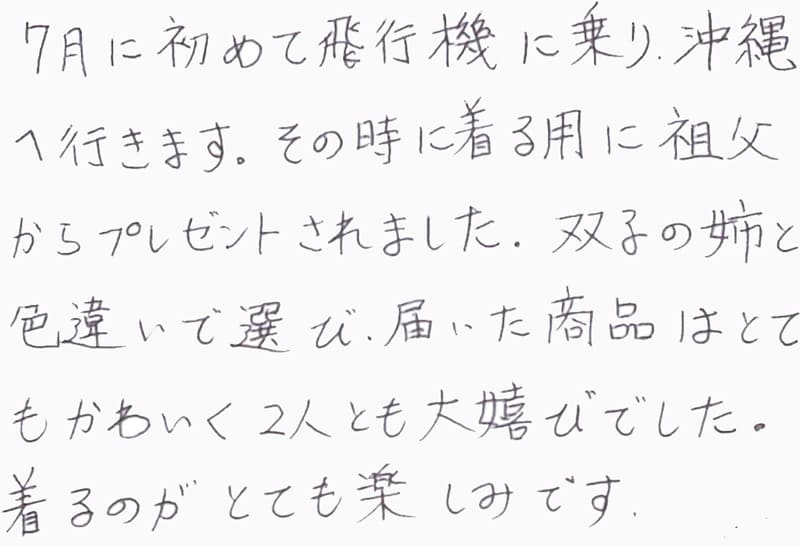 7月に初めて飛行機に乗り、沖縄
へ行きます。その時に着る用に祖父
からプレゼントされました。双子の姉と
色違いで選び、届いた商品はとて
もかわいく2人とも大嬉びでした。
着るのがとても楽しみです。